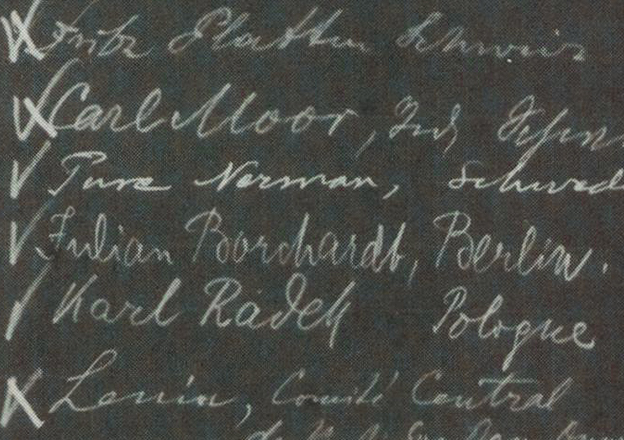 Fritz Platten Schweiz
Carl Moor,
Ture Nerman, Schwed
Julian Borchardt, Berlin.
Karl Radek Pologne
Lenin, Comité Central